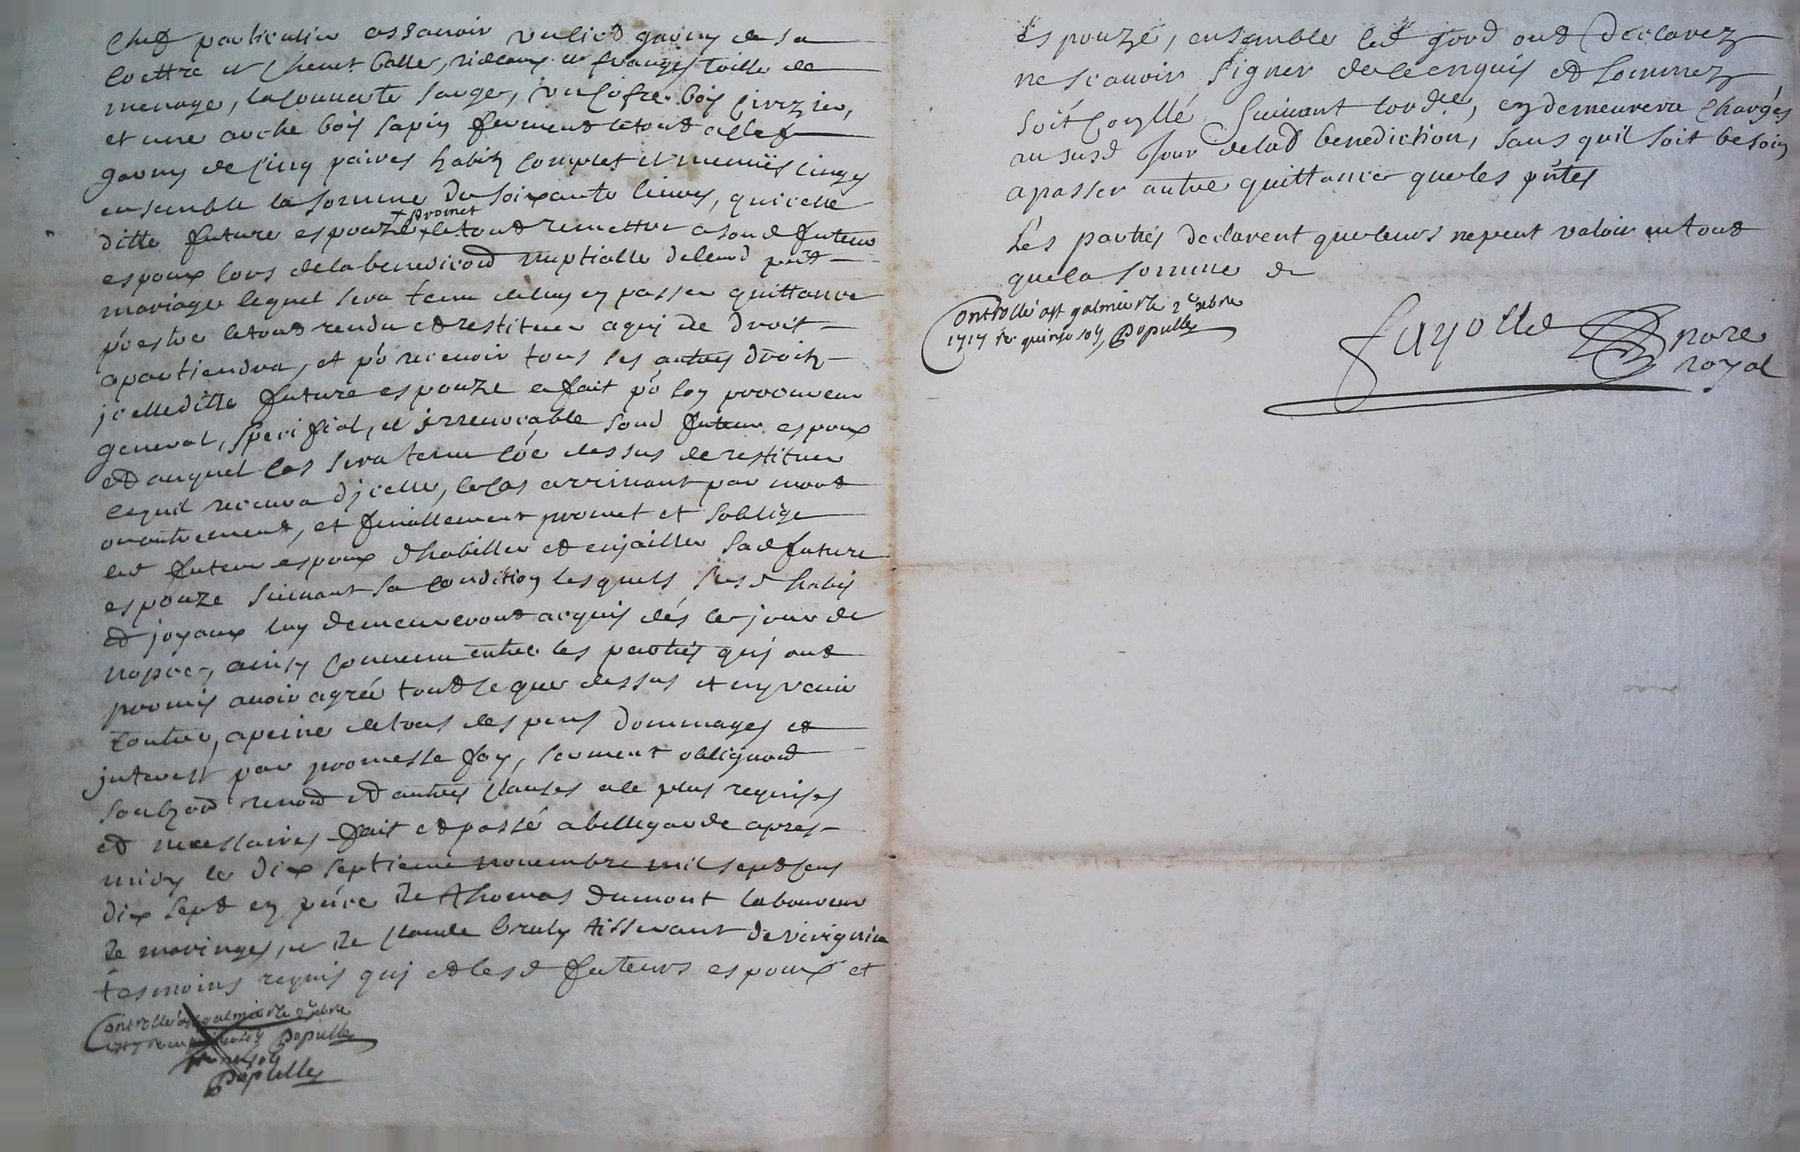 chef particulier assavoir un lict garny de sa
coettre et chevet balle, rideaux et franges toille de
menage, la couverte sarge, un cofre bois cirizier,
et une arche bois sapin fermant le tout a clef
garny de cinq paires habitz complet et menues linges
ensemble la somme de soixante livres, qu'icelle
ditte future espouze + promet le tout remettre a son d futeur
espoux lors de la benediction nuptialle de leur d pñt
mariage lequel sera tenu de luy en passer quittance
p estre le tout rendu et restituer a qui de droit
apartiendra, et p recevoir tous ses autres droitz
jcelleditte future espouze a fait p soy procureur
general, specifial, et jrrevocable son d futeur espoux
et auquel cas sera tenu coe dessus de restituer
ce quil recevra djcelle, le cas arrivant par mort
ou autrement, et finallement promet et soblige
led futeur espoux d'habiller et enjailler sa d future
espouze suivant sa condition lesquels susd habis
et joyaux luy demeureront acquis dés le jour de
nopces, ainsy convenu entre les parties qui ont
promis avoir agréé tout ce que dessus et ny venir
contre, a peine de tous despens dommages et
jnterest par promesse foy, serment obligaon
soubzon renon et autres clauses ale plus requises
et necessaires fait et passé a bellegarde apres
midy le dix septieme novembre mil sept cens
dix sept en pñce de Thomas dumont laboureur
de maringes, et de claude bruly tisserant de virignieu
tesmoins requis qui et lesd futeurs espoux et
Controllé a st galmier le 2e xbre
1717 Populle
Populle
Espouze, ensemble led gord ont declarez
ne scavoir signer de ce enquis et sommez
soit conllé suivant lord ce, en demeurera chargés
au susd jour de lad benediction, sans quil soit besoin
a passer autre quittance que les pñtes
Les parties declarent que leurs nepeut valoir en tout
que la somme de
Controllé a st galmier le 2e xbre
1717 re quinze sols Populle
Fayolle nore
royal